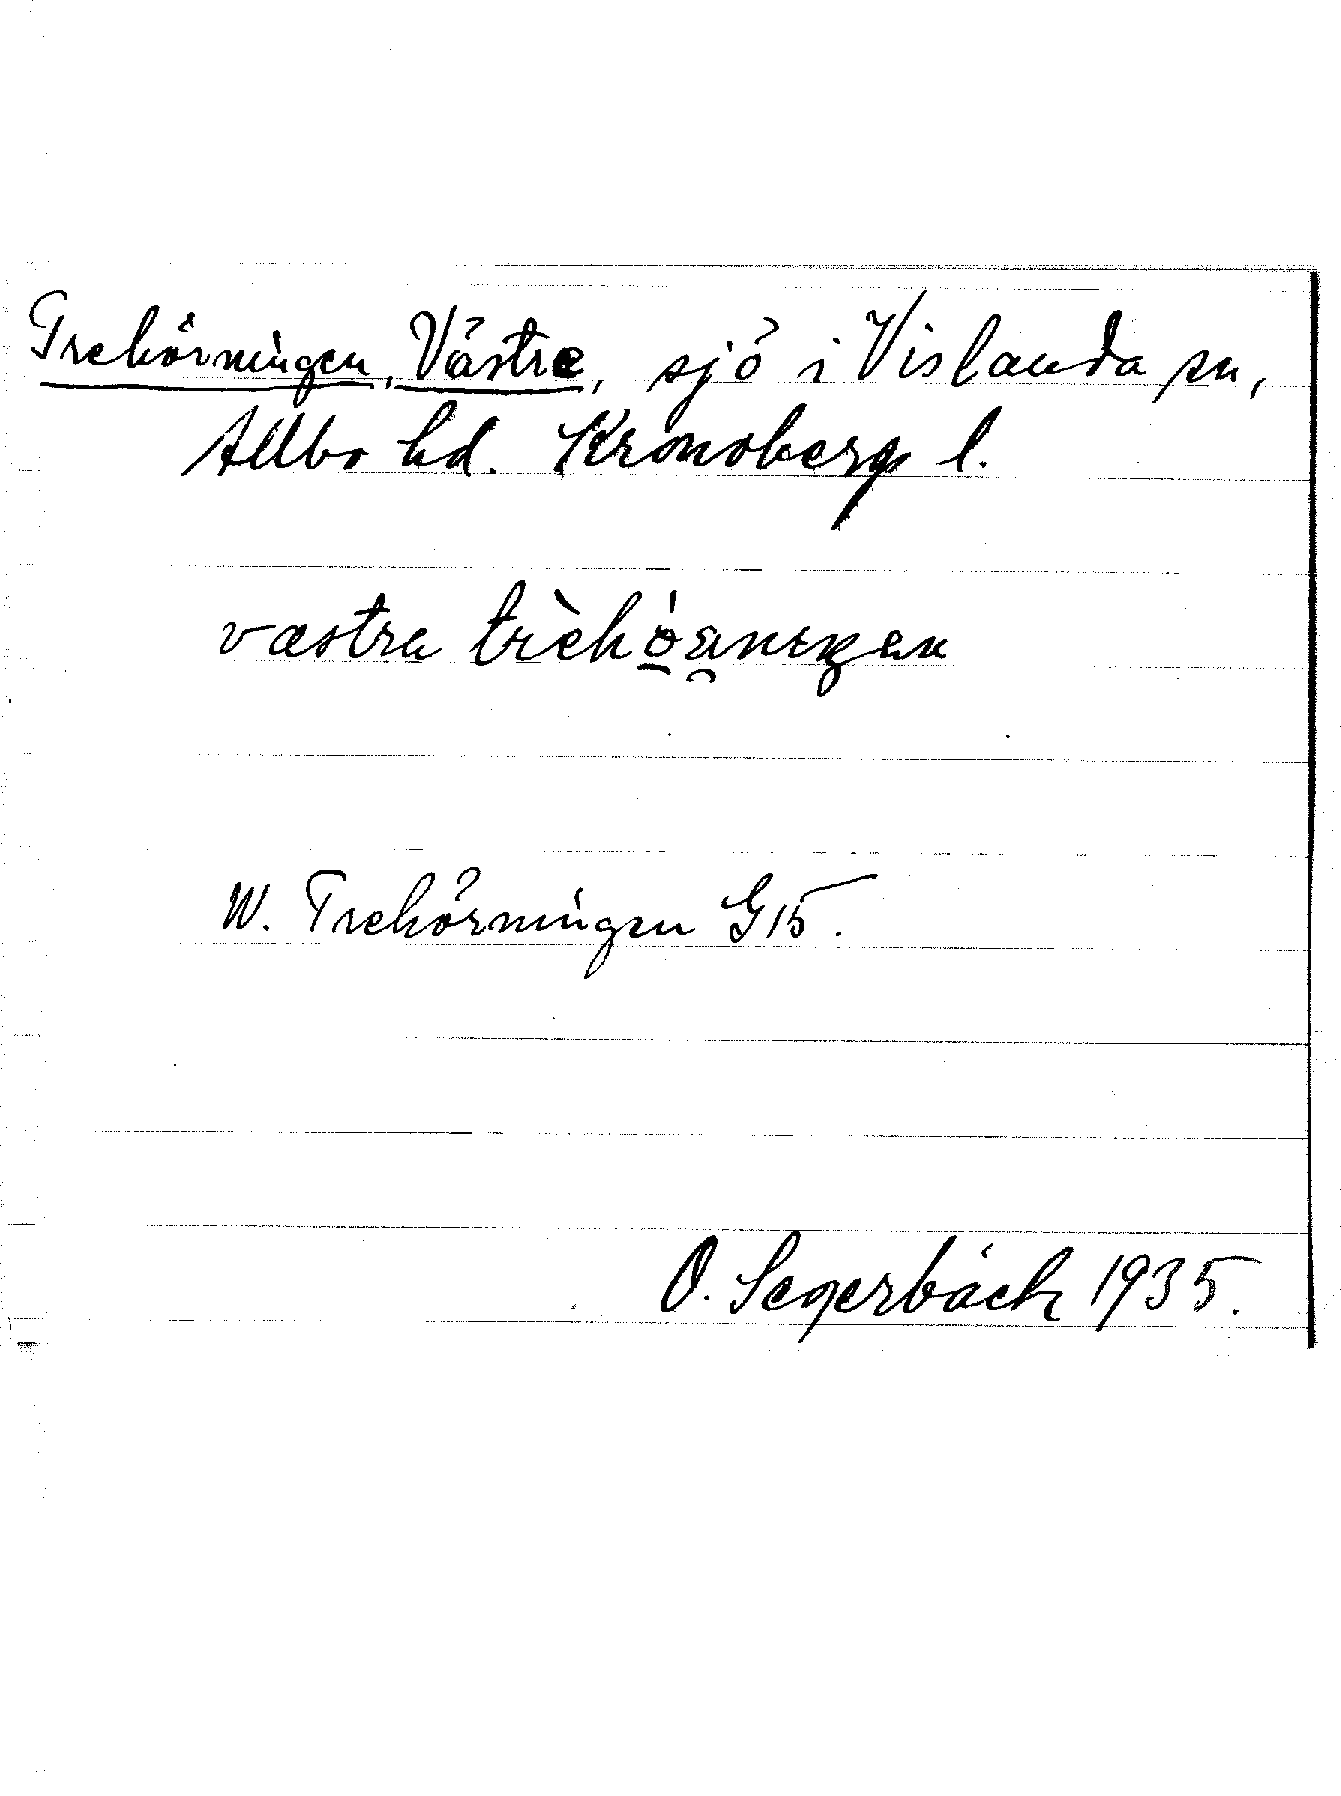 Trehörningen, Västre, sjö i Vislanda sn,
Allbo hd. Kronoberg l.
væstra trèhöanıŋen
W. Trehörningen G15.
O. Segerbäck 1935.